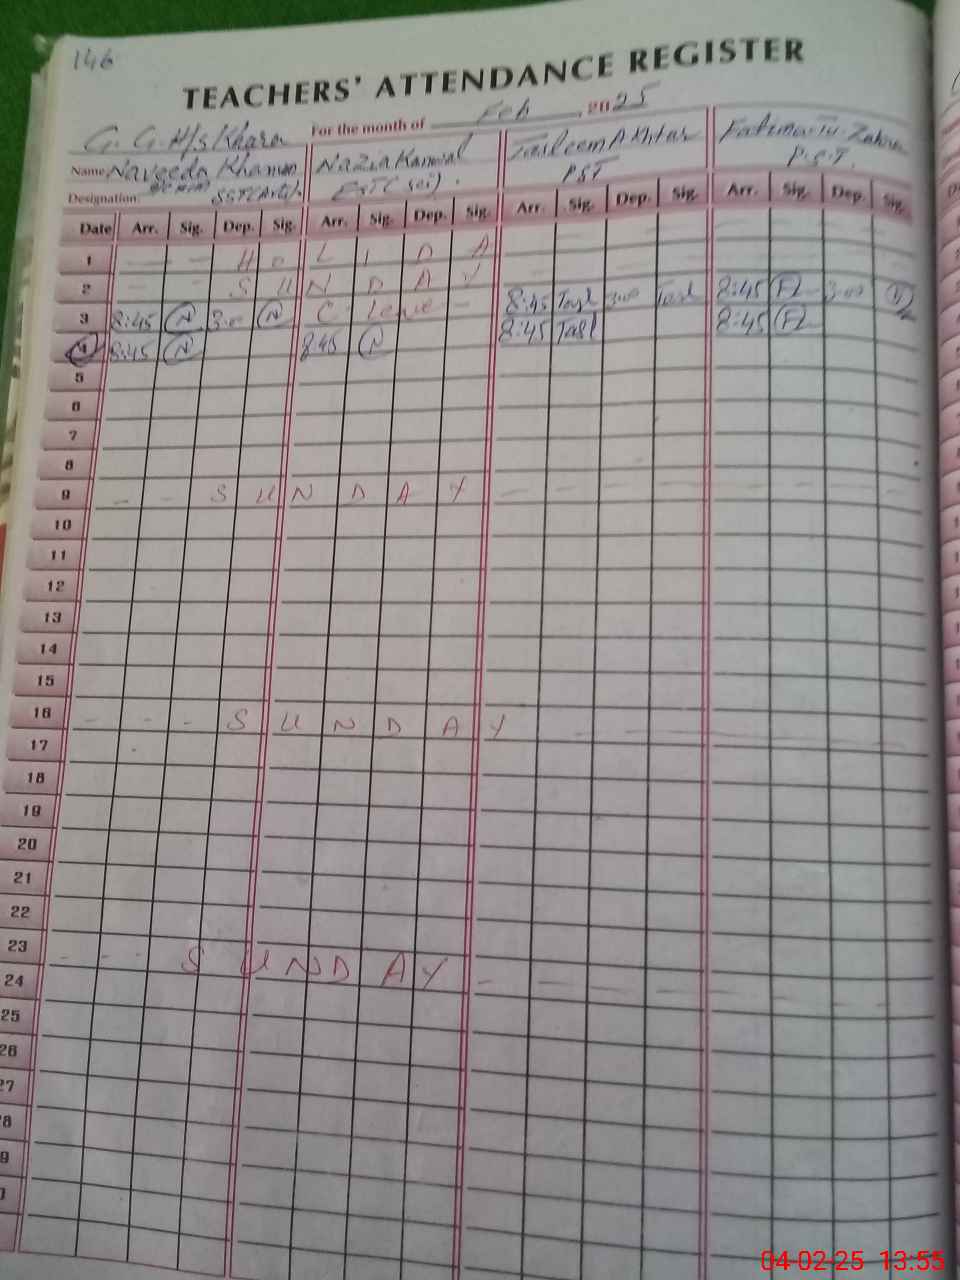 146
TEACHERS' ATTENDANCE REGISTER
G. G. H/S Khara For the month of Feb 2025
Name Naveeda Khanum Nazia Kanwal Tasleem Akhtar Fatima-tu-Zahra
Designation: SST(Arts) EST(Sci). PST P.S.T.
Date Arr. Sig. Dep. Sig. Arr. Sig. Dep. Sig. Arr. Sig. Dep. Sig. Arr. Sig. Dep. Sig.
1 - - H O L I D A
2 - - S U N D A Y
3 8:45 N 3:00 N C Leave - 8:45 Tasl 3:00 Tasl 8:45 FZ 3:00
4 8:45 N 8:45 N 8:45 Tasl 8:45 FZ
5
6
7
8
9 - - S U N D A Y - - - -
10
11
12
13
14
15
16 - - - S U N D A Y - - -
17
18
19
20
21
22
23 - - - S U N D A Y - - - -
24
25
26
27
04-02-25 13:55